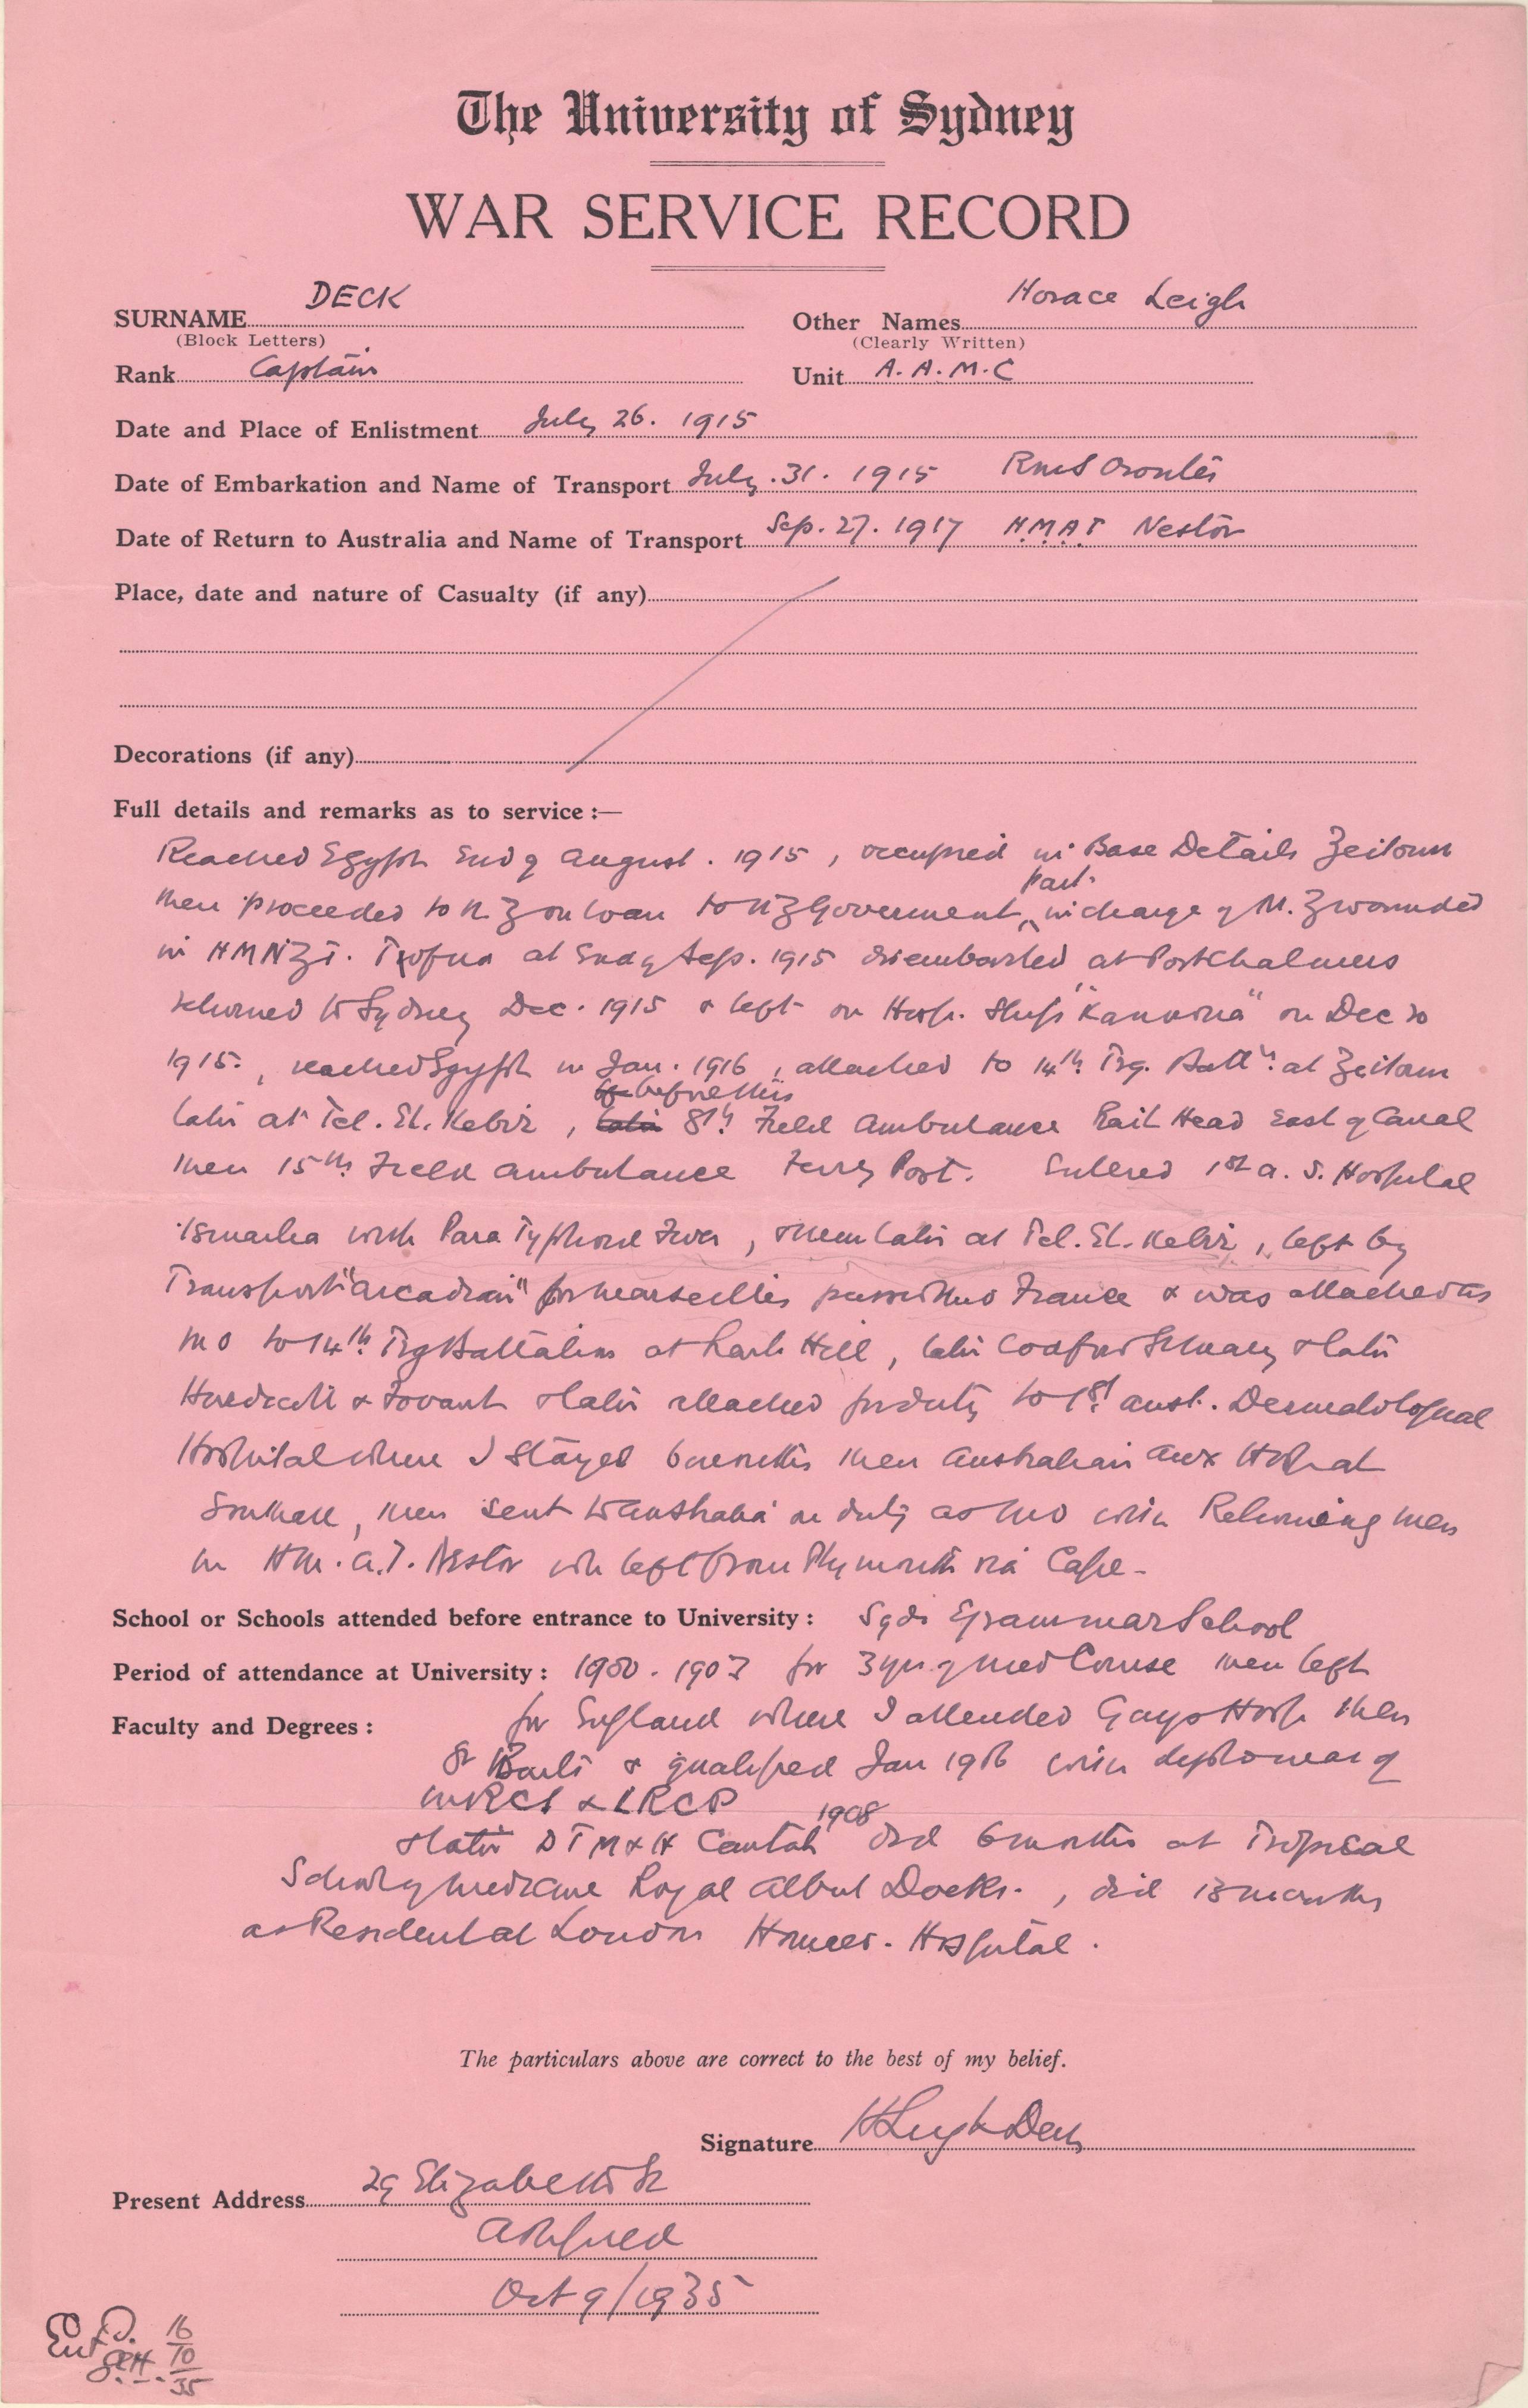 The University of Sydney
WAR SERVICE RECORD
SURNAME DECK Other Names Horace Leigh
(Block Letters) (Clearly Written)
Rank Captain Unit A.A.M.C
Date and Place of Enlistment July 26. 1915
Date of Embarkation and Name of Transport July.31. 1915 RMS Orontes
Date of Return to Australia and Name of Transport Sep.27.1917 H.M.A.T Nestor
Place, date and nature of Casualty (if any)
Decorations (if any)
Full details and remarks as to service :—
Reached Egypt End of August. 1915, occupied in Base Details Zeitoun
part
then proceeded to N.Z on loan to NZ Goverment, in charge of N.Z wounded
in HMNZT. Tofua at End of Sep. 1915 disembarked at Port Chalmers
returned to Sydney Dec. 1915 & left on Hosp. Ship "Kanowna" on Dec 20
1915, reached Egypt in Jan. 1916, attached to 14th. Trg. Battn. at Zeitoun
before this
later at Tel. El. Kebir, later 8th. Field Ambulance Rail Head East of Canal
then 15th Field Ambulance Ferry Post. Entered 1st A. S. Hospital
Ismailia with Para Typhoid Fever, then later at Tel. El. Kebir, left by
Transport "Arcadian" for Marseilles passed thro France & was attached as
MO to 14th. Trg Battalion at Lark Hill, later Codford St Mary & later
Hurdcott & Fovant & later attached for duty to 1st. Aust. Dermatological
Hospital where I stayed 6 months then Australian Aux Hosp at
Southall, then sent to Australia on duty as MO with Returning men
in HM.A.T. Nestor wh left from Plymouth via Cape-
School or Schools attended before entrance to University : Syd. Grammar School
Period of attendance at University : 1900. 1903 for 3 yrs of Med Course then left
Faculty and Degrees : for England where I attended Guys Hosp then
St Barts & qualified Jan 1906 with diplomas of
MRCS & LRCP
1908
& later DTM & H Cantab did 6 months at Tropical
School of Medicine Royal Albert Docks., did 18 months
as Resident at London Homeo. Hospital.
The particulars above are correct to the best of my belief.
Signature H Leigh Deck
Present Address 29 Elizabeth St
Ashfield
Oct 9/1935
Ent 16
10
35